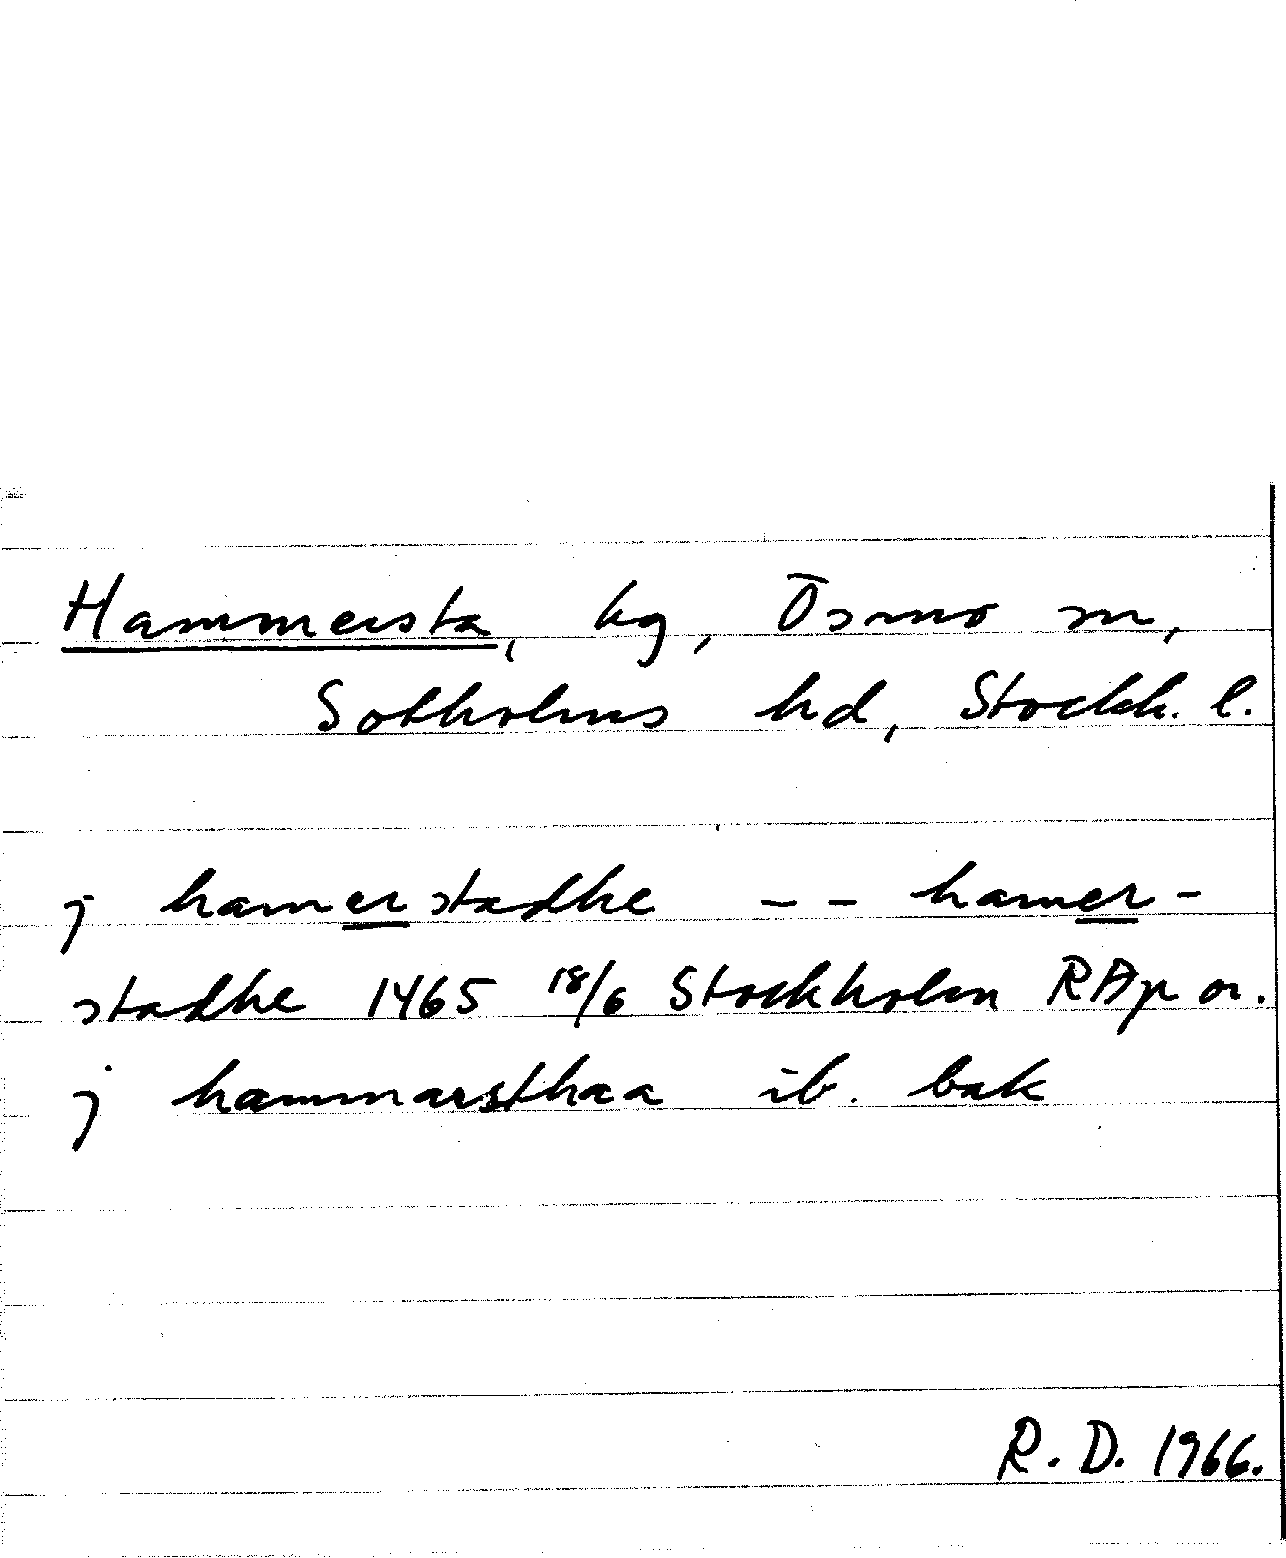 Hammersta, hg, Ösmo sn,
Sotholms hd, Stockh. l.
j hamerstadhe -- hamer-
stadhe 1465 18/6 Stockholm RAp or.
j hammarsthaa ib. bak
R. D. 1966.